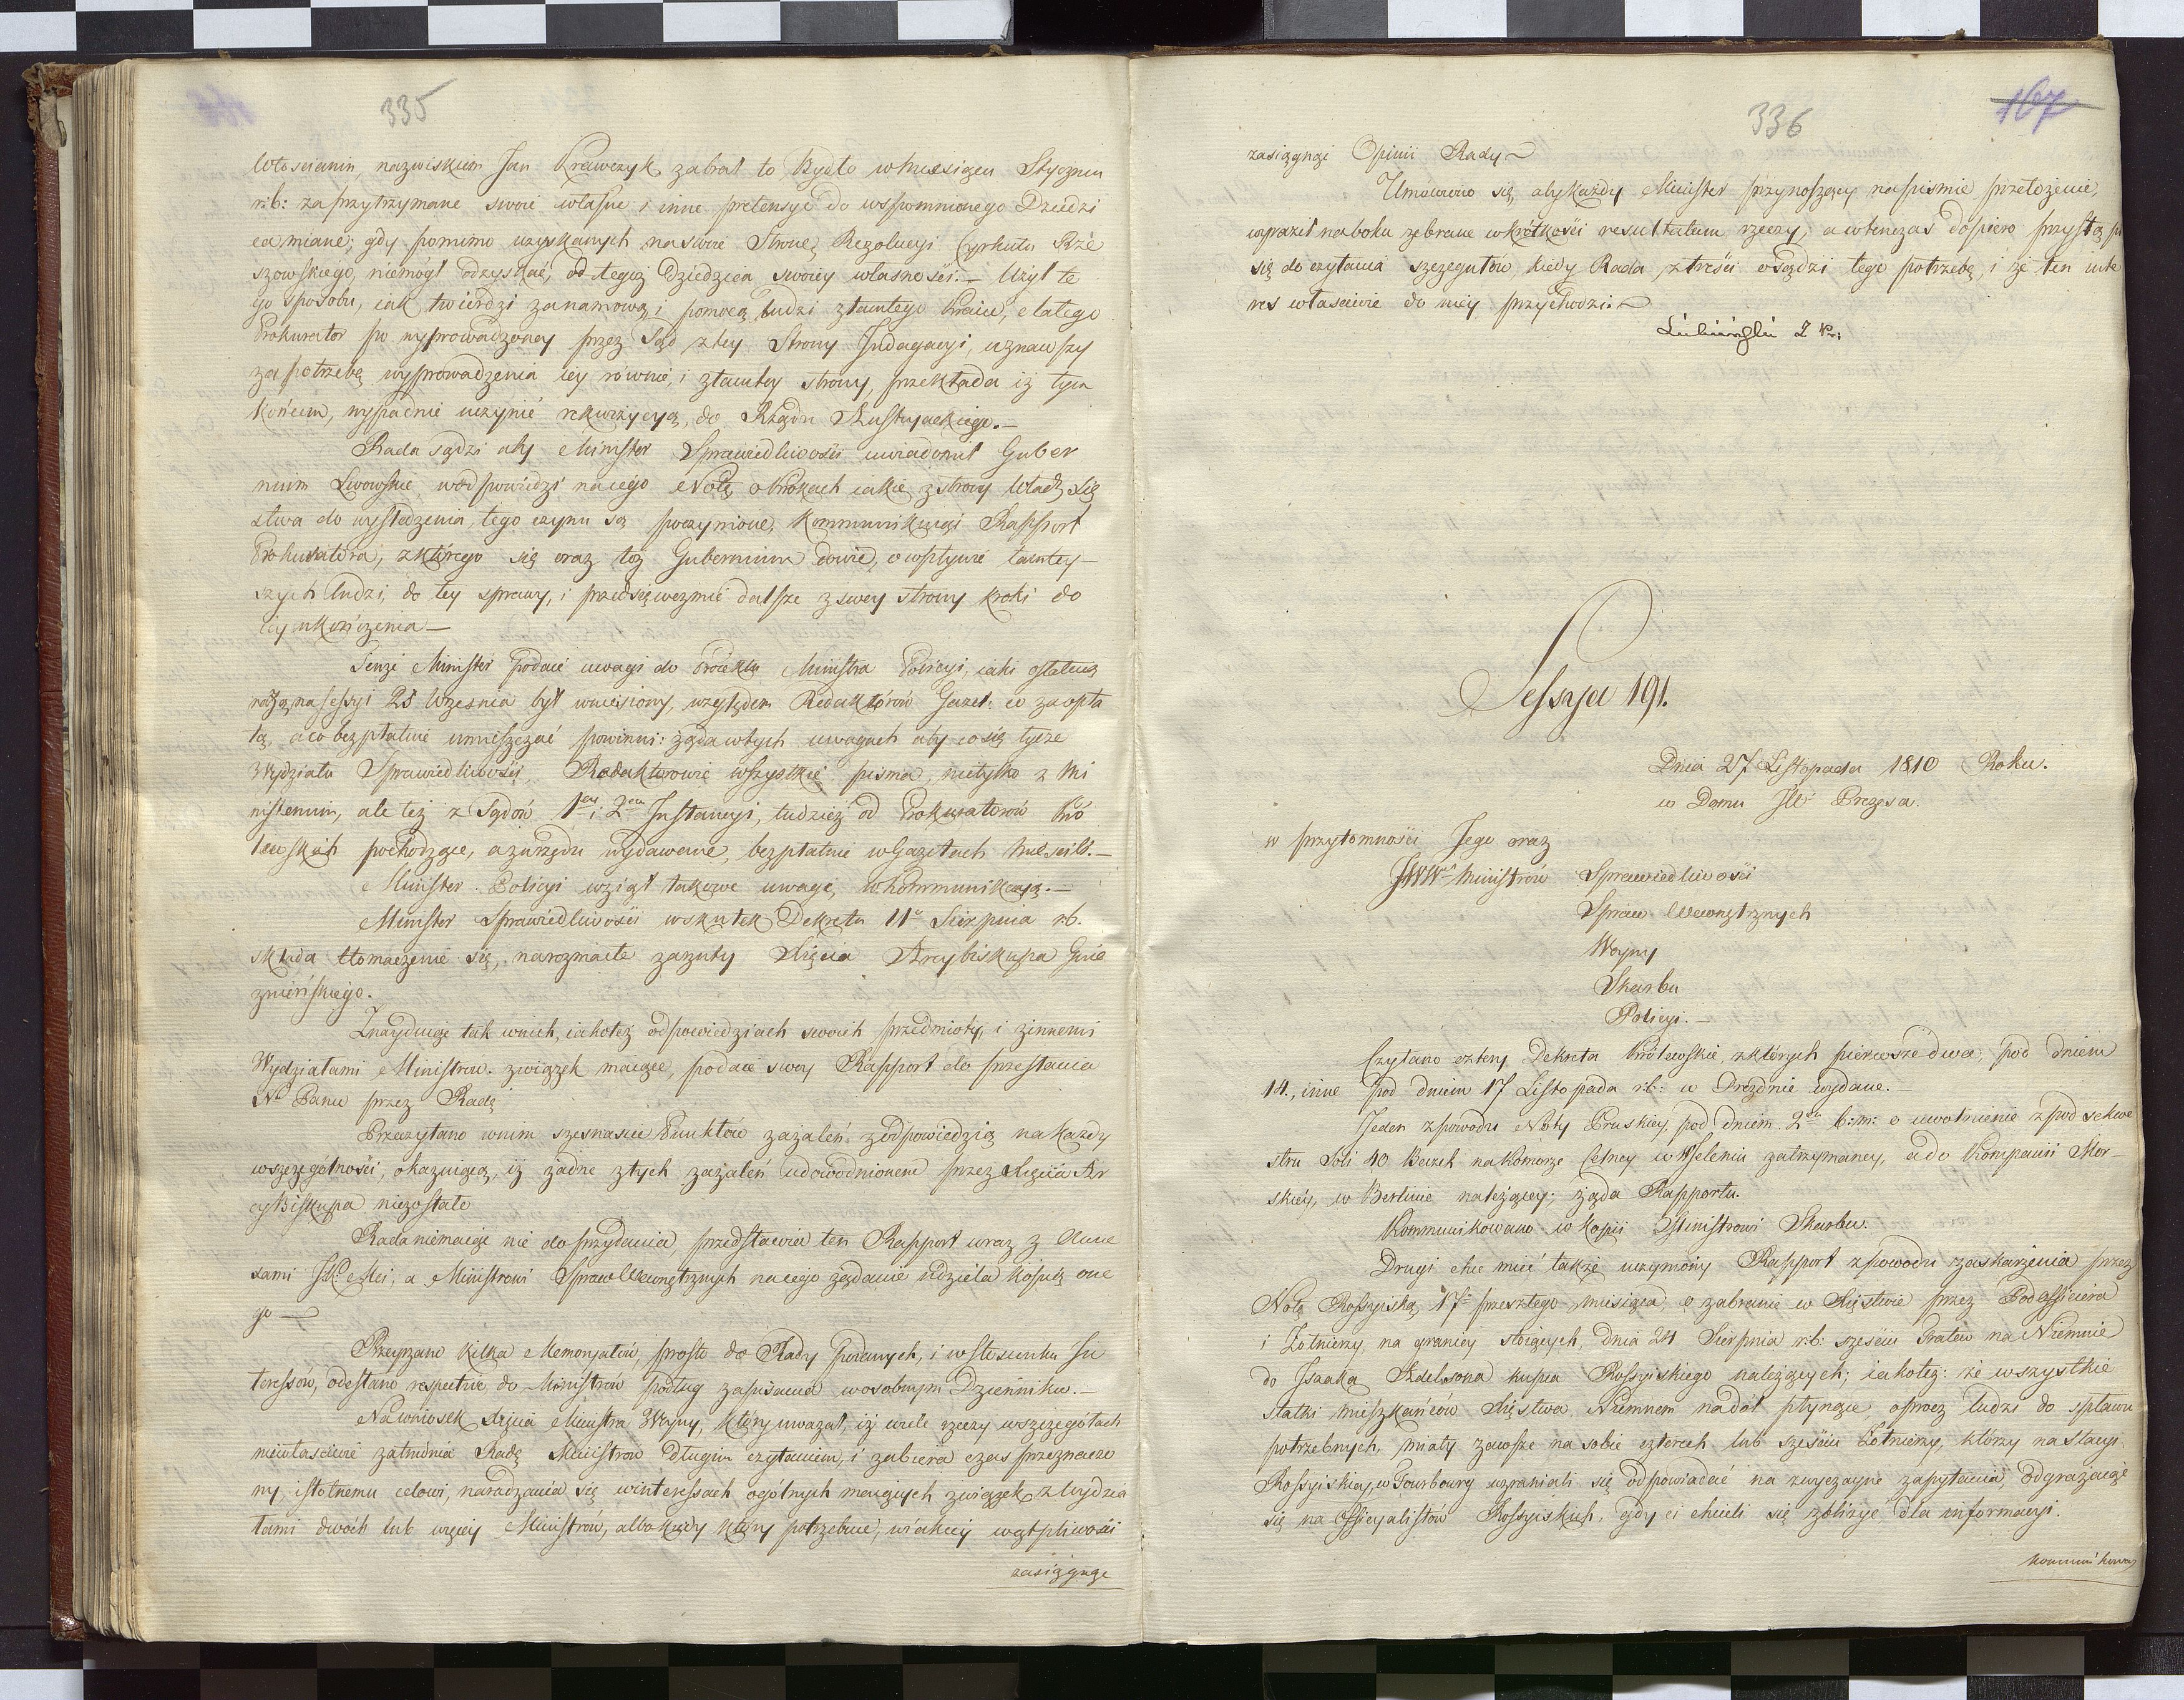 335
Włoscianin, nazwiskiem Jan Krawczyk zabrał to Bydło w Miesiącu Styczniu
r:b: za przytrzymane swoie własne i inne pretensye do wspomnionego Dziedzi
ca miane; gdy pomimo uzyskanych na swoię Stronę Rezolucyi Cyrkułu Rze
szowskiego, niemógł odzyskać, od tegoż Dziedzica swoiey własności. – Użył te
go sposobu, iak twierdzi za namową i pomocą ludzi z tamtego Kraiu, dlatego
Prokurator po wyprowadzoney przez Sąd z tey Strony Indagacyi, uznawszy
za potrzebę wyprowadzenia iey równie i z tamtey strony, przekłada iż tym
końcem, wypadnie uczynić rekwizycyą, do Rządu Austryackiego. –
Rada sądzi aby Minister Sprawiedliwości uwiadomił Guber
nium Lwowskie w odpowiedzi na iego Notę o krokach iakie z strony Władz Xię
stwa do wysledzenia tego czynu są poczynione, kommunikuiąc Rapport
Prokuratora, z którego się oraz toż Gubernium dowie, o wpływie tamtey–
szych ludzi, do tey sprawy, i przedsięwezmie dalsze z swey strony kroki do
iey ukończenia –
Tenże Minister podaie uwagi do Proiektu Ministra Policyi, iaki ostatnią
razą na sessyi 28 Wrzesnia był wniesiony, względem Redaktorów Gazet: co za opła
tą, a co bezpłatnie umieszczać powinni: żąda w tych uwagach aby co się tycze
Wydziału Sprawiedliwości, Redaktorowie wszystkie pisma, nietylko z Mi
nisterium, ale też z Sądów 1ey i 2ey Instancyi, tudzież od Prokuratorów Kró
lewskich pochodzące, a z urzędu wydawane, bezpłatnie w Gazetach mieścili. –
Minister Policyi wziął takowe uwagi, w kommunikacyą. –
Minister Sprawiedliwości w skutek Dekretu 11o Sierpnia r.b.
składa tłomaczenie się, na rozmaite zarzuty Xięcia Arcybiskupa Gnie
znieńskiego.
Znayduiąc tak w nich, iakoteż odpowiedziach swoich przedmioty, i z innemi
Wydziałami Ministrów związek maiące, podaie swoy Rapport do przesłania
N. Panu przez Radę
Przeczytano w nim szesnascie Punktów zażaleń, z odpowiedzią na każdy
w szczególności, okazuiącą, iż żadne z tych zażaleń udowodnionem przez Xięcia Ar
cyBiskupa niezostało
Rada niemaiąc nic do przydania, przedstawia ten Rapport wraz z Anne
xami JK. Mci, a Ministrowi Spraw Wewnętrznych na iego żądanie udziela kopią one
go –
Przeyrzano kilka Memoryałów, prosto do Rady podanych, i w stosunku In
teressów, odesłano respective do Ministrów podług zapisania w osobnym Dzienniku. –
Na wniosek Xięcia Ministra Woyny, który uważał, iż wiele rzeczy w szczegółach
niewłasciwie zatrudnia Radę Ministrów długim czytaniem, i zabiera czas przeznaczo
ny, istotnemu celowi, naradzania się w interessach ogólnych maiących związek z Wydzia
łami dwóch lub więcey Ministrów, albo kiedy który potrzebuie, w iakiey wątpliwości
zasiągnąc
336
167
zasiągnąć Opinii Rady –
Umówiono się, aby każdy Minister przynoszący na pismie przełożenie,
wyraził na boku zebrane w krótkości resultatum rzeczy; a wtenczas dopiero przystąpi
się do czytania szczegułów, kiedy Rada z treści osądzi tego potrzebę, i że ten inte
res własciwie do niey przychodzi –
Sessya 191.
Dnia 27 Listopada 1810 Roku.
w Domu JW Prezesa.
w przytomności Jego oraz
JWWch Ministrów Sprawiedliwości
Spraw Wewnętrznych
Woyny
Skarbu
Policyi. –
Czytano cztery Dekreta Królewskie, z których pierwsze dwa, pod dniem
14., inne pod dniem 17 Listopada r:b: w Dreznie wydane. –
Jeden z powodu Noty Pruskiey pod dniem 2m b:m: o uwolnienie z pod sekwe
stru Soli 40 Beczek na Komorze Celney w Jeleniu zatrzymaney, a do Kompanii Mor–
skiey, w Berlinie należącey; żąda Rapportu.
Kommunikowano w kopii Ministrowi Skarbu.
Drugi chce mieć także uczyniony Rapport z powodu zaskarżenia przez
Notę Rossyiską, 17o przeszłego miesiąca, o zabranie w Xięstwie przez Podofficera
i Żołnierzy na granicy stoiących, dnia 24 Sierpnia r:b: sześciu Tratew na Niemnie
do Isaaka Adelsona kupca Rossyiskiego należących; iakoteż: że wszystkie
statki mieszkańców Xięstwa Niemnem nadół płynące oprocz ludzi do spławu
potrzebnych, miały zawsze na sobie czterech lub sześciu Żołnierzy, którzy na stacyi
Rossyiskiey w Jourbourg wzraniali się odpowiadać na zwyczayne zapytania, odgrażaiąc
się na Officyalistów Rossyiskich, gdy ci chcieli się zbliżyć dla informacyi.